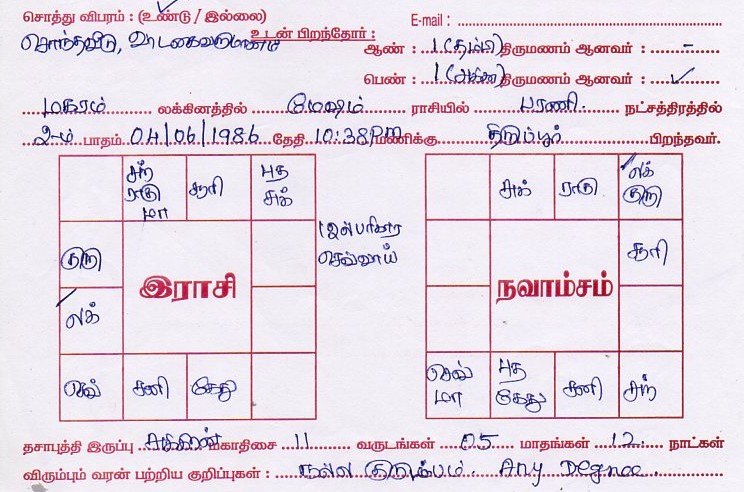 சொத்து விபரம் : (உண்டு / இல்லை)
E-mail :
சொந்தவீடு, வாடகைவருமானம்
உடன் பிறந்தோர் :
ஆண் : 1 (தம்பி) திருமணம் ஆனவர் : -
பெண் : 1 (அக்கா) திருமணம் ஆனவர் : ✓
மகரம் லக்கினத்தில் மேஷம் ராசியில் பரணி நட்சத்திரத்தில்
2-ம் பாதம் 04/06/1986 தேதி 10:38 PM மணிக்கு திருப்பூர் பிறந்தவர்.
சந் ராகு மா
சூரி
புத சுக்
குரு
லக்
செவ்
சனி
கேது
இராசி
1இல் பரிகார
செவ்வாய்
சுக்
ராகு
லக் குரு
சூரி
செவ் மா
புத கேது
சனி
சந்
நவாம்சம்
தசாபுத்தி இருப்பு சுக்கிரன் மகாதிசை 11 வருடங்கள் 05 மாதங்கள் 12 நாட்கள்
விரும்பும் வரன் பற்றிய குறிப்புகள் : நல்ல குடும்பம். Any Degree.